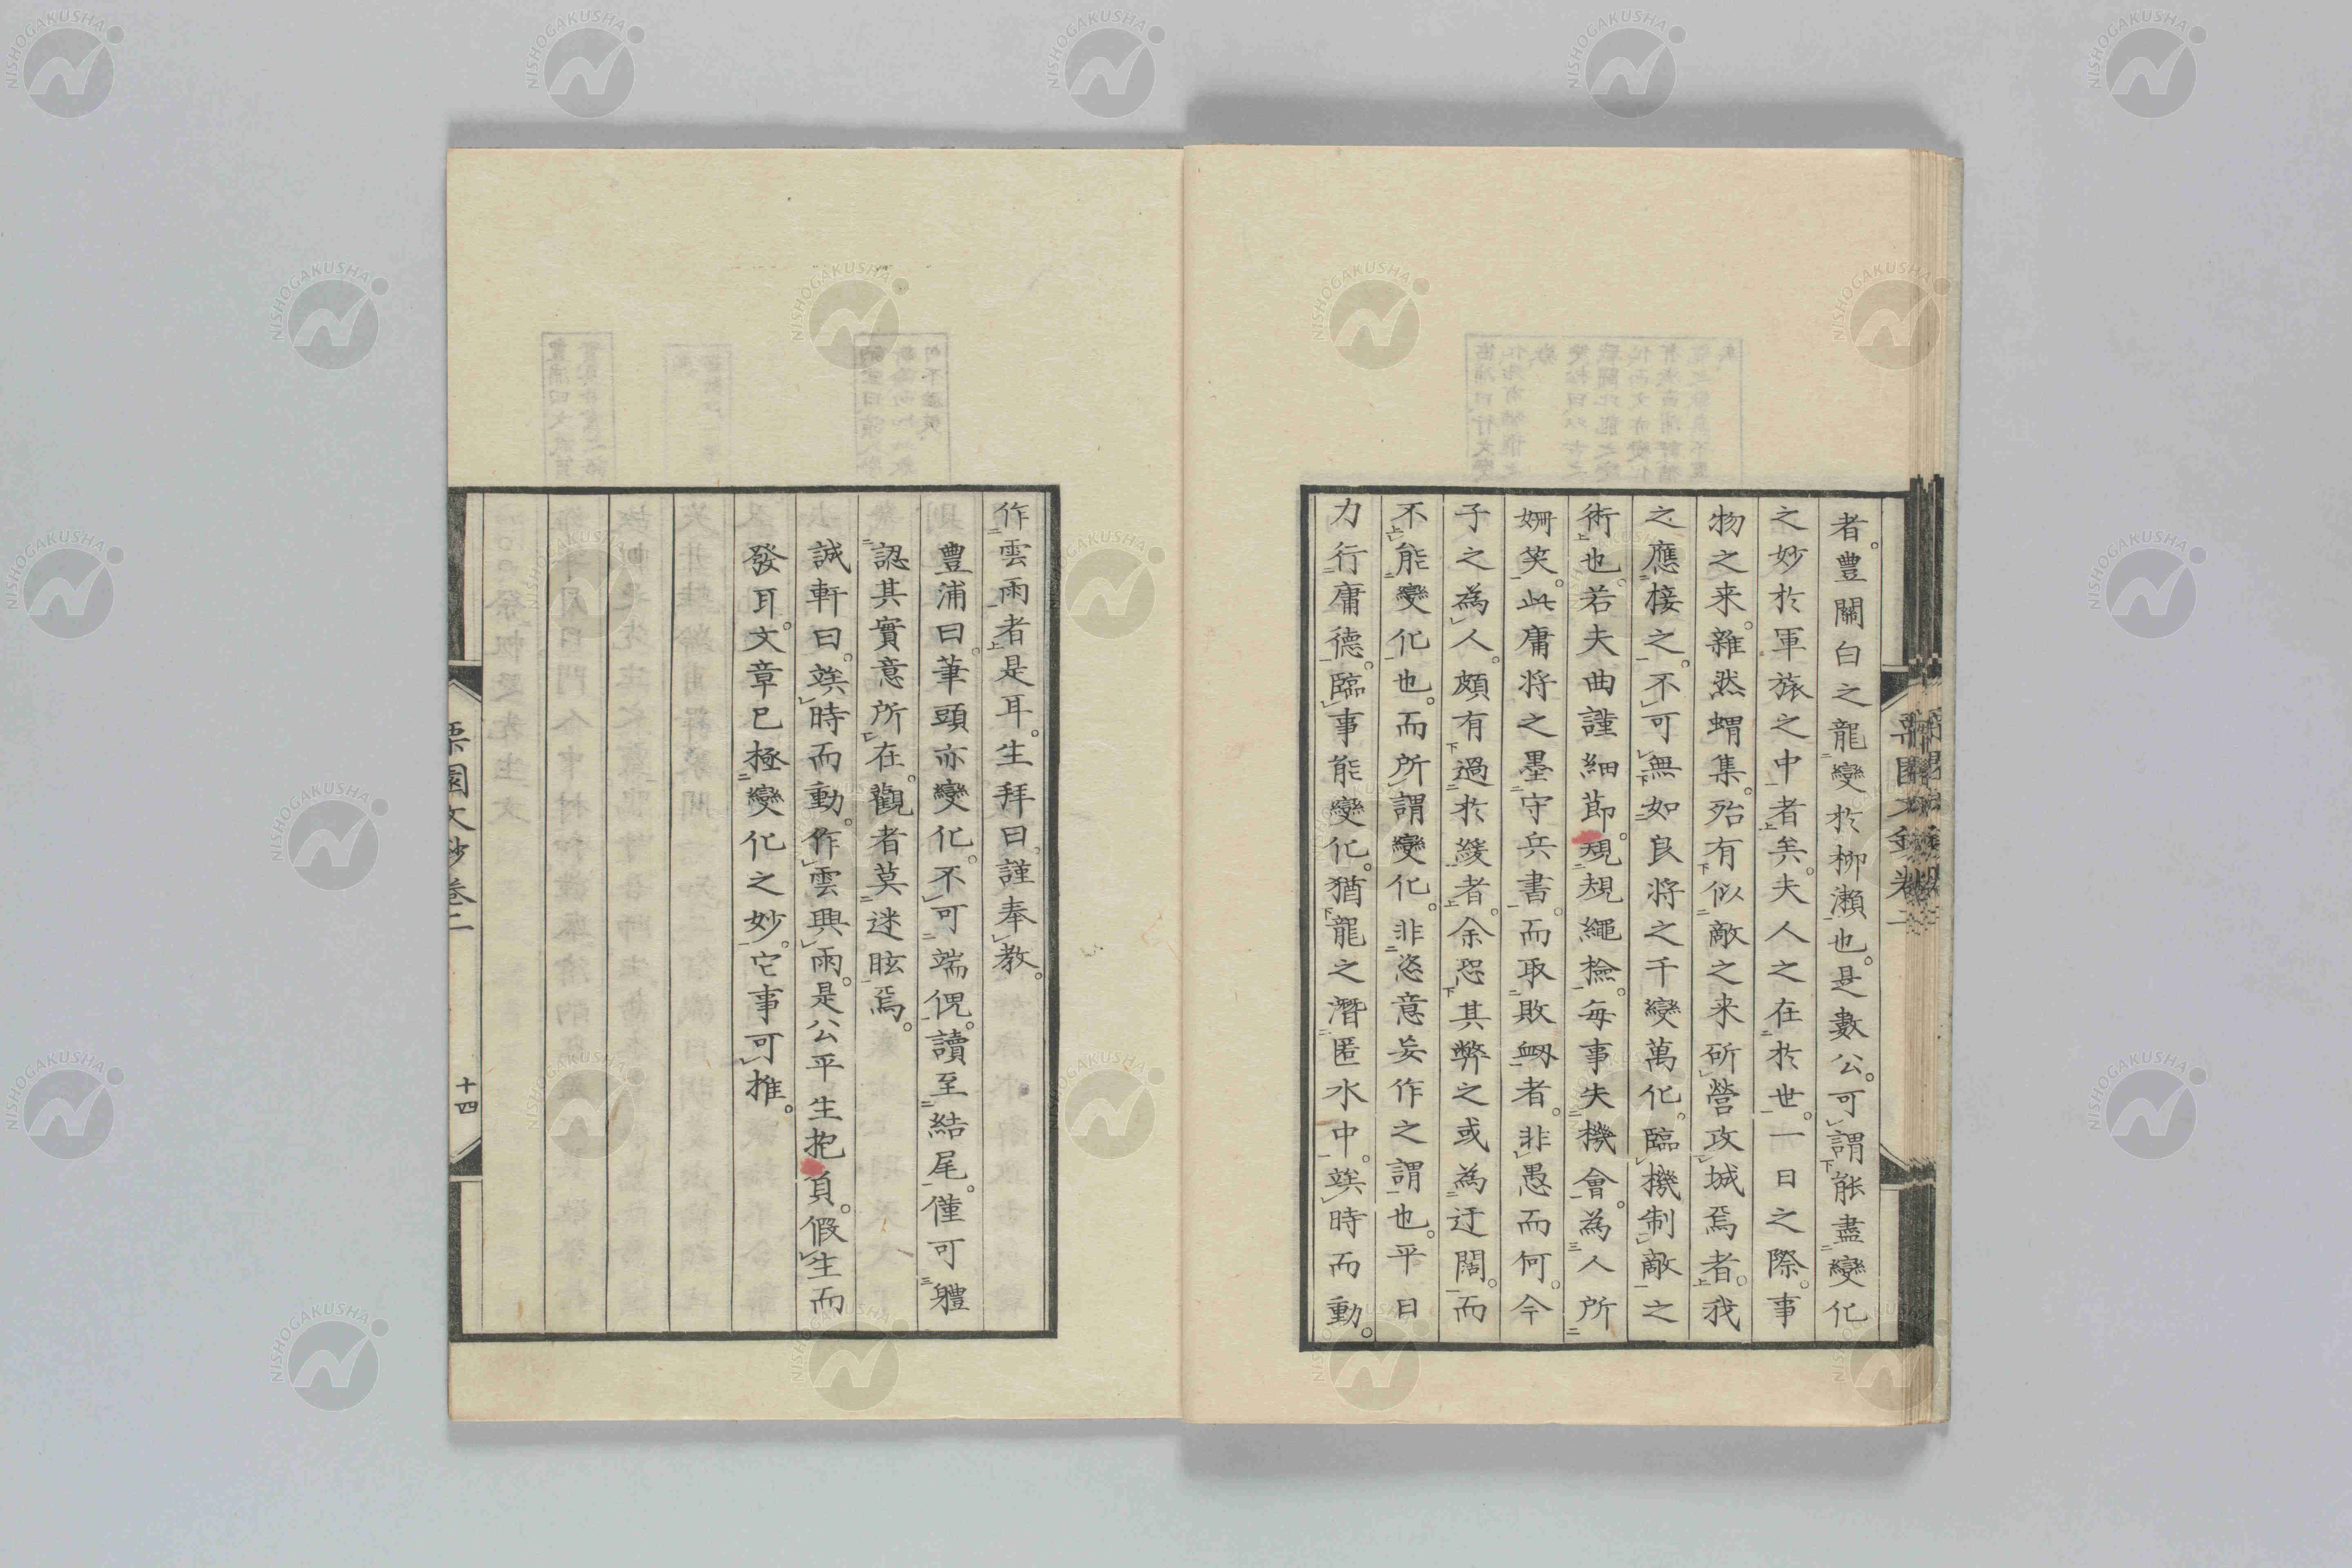 者。豊關白之龍變於柳瀨也。是數公。可謂能盡變化
之妙於軍旅之中者矣。夫人之在於世。一日之際。事
物之来。雜然蝟集。殆有似敵之来斫營攻城焉者。我
之應接之。不可無如良将之千變萬化。臨機制敵之
術也。若夫曲謹細節。規規繩檢。每事失機會。為人所
姍笑。此庸将之墨守兵書。而取敗衂者。非愚而何。今
子之為人。頗有過於緩者。余恐其弊之或為迂闊。而
不能變化也。而所謂變化。非恣意妄作之謂也。平日
力行庸德。臨事能變化。猶龍之潛匿水中。竢時而動。
作雲雨者是耳。生拜曰。謹奉教。
豊浦曰。筆頭亦變化。不可端倪。讀至結尾。僅可軆
認其實意所在。觀者莫迷眩焉。
誠軒曰。竢時而動。作雲興雨。是公平生抱負。假生而
發耳。文章已極變化之妙。它事可推。
栗園文鈔卷二
十四